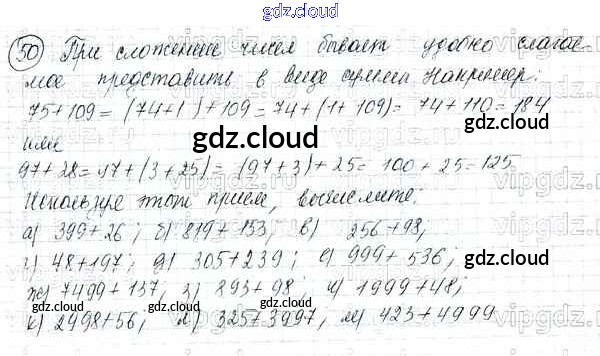 gdz.cloud
50 При сложении чисел бывает удобно слагае-
мое представить в виде суммы Например:
75+109=(74+1)+109=74+(1+109)=74+110=184
или gdz.cloud
97+28=97+(3+25)=(97+3)+25=100+25=125
Используя этот прием, вычислите:
а) 399+26; б) 819+153, в) 256+98;
г) 48+197; д) 305+239; е) 999+536;
ж) 7499+137, з) 893+98; и) 1999+48;
к) 2498+56, л) 325+3997, м) 423+4999
gdz.cloud
gdz.cloud
gdz.cloud